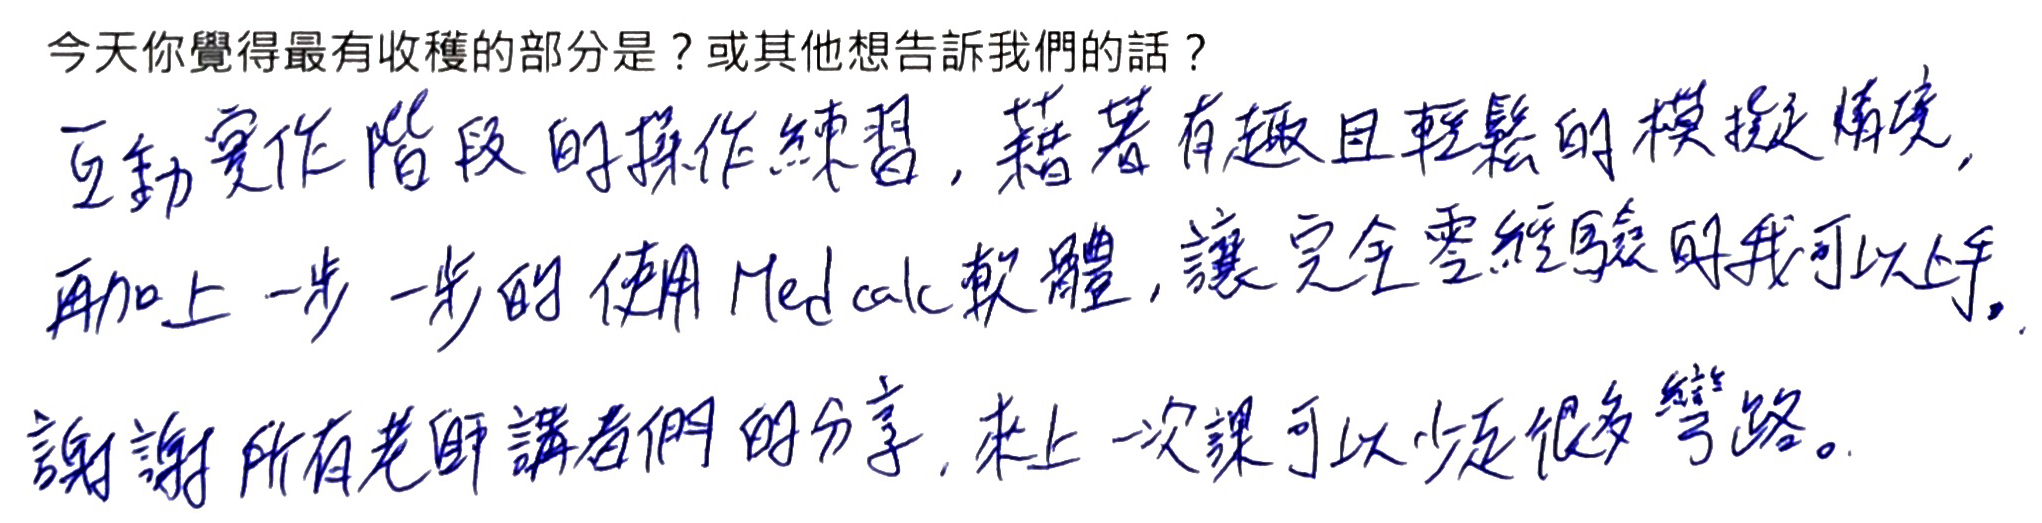 今天你覺得最有收穫的部分是？或其他想告訴我們的話？
互動實作階段的操作練習，藉著有趣且輕鬆的模擬情境，
再加上一步一步的使用Medcalc軟體，讓完全零經驗的我可以上手。
謝謝所有老師講者們的分享，來上一次課可以少走很多彎路。